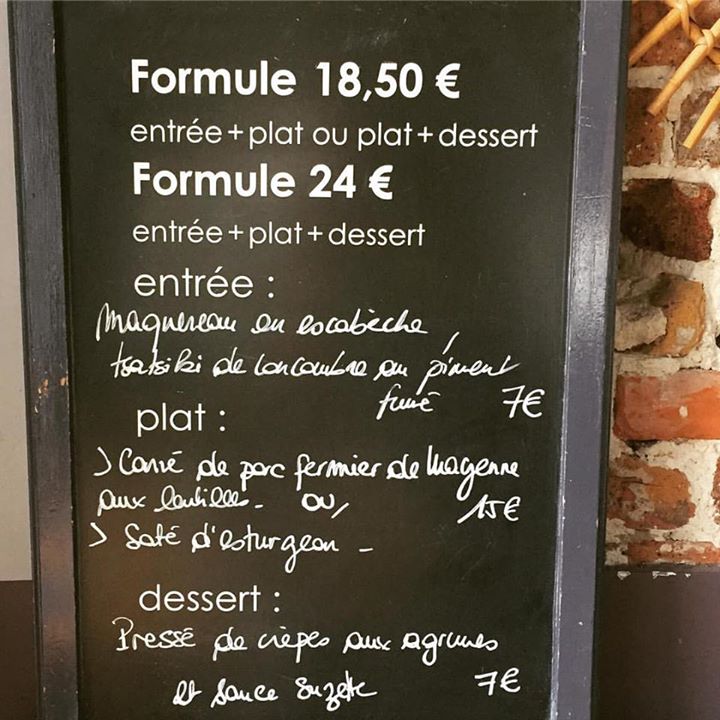 Formule 18,50 €
entrée + plat ou plat + dessert
Formule 24 €
entrée + plat + dessert
entrée :
Maquereau en escabèche,
tsatsiki de concombre au piment
fumé 7€
plat :
> Carré de porc fermier de Mayenne
aux lentilles - ou, 15€
> Saté d'esturgeon -
dessert :
Pressé de crêpes aux agrumes
et sauce Suzette 7€